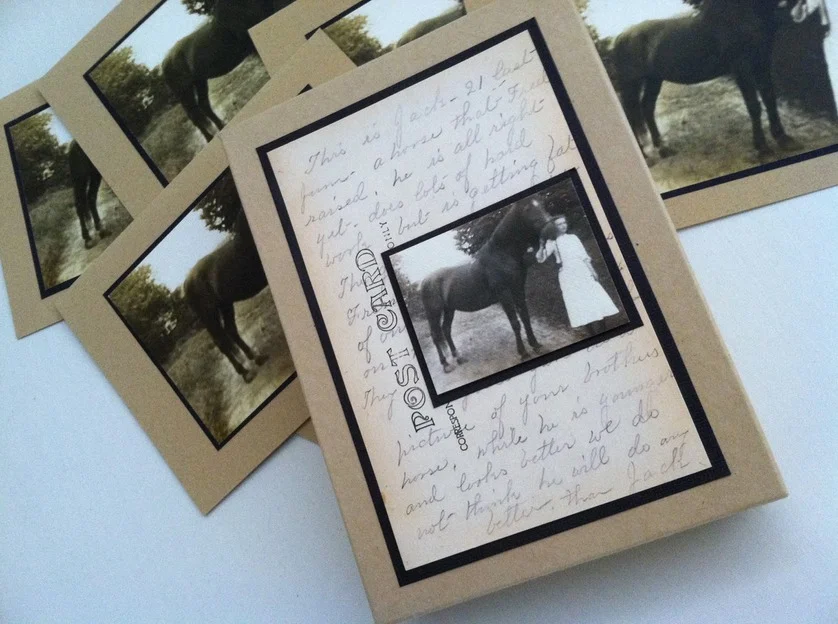 This is Jack - 21 last
a horse that Fred
raised, he is all right
yet. does lots of hard
work, but is getting fat
Th
Fr
of
on
They
picture of your brothers
horse, while he is younger
and looks better we do
not think he will do any
better, than Jack
POST CARD
ONLY
CORRESPON